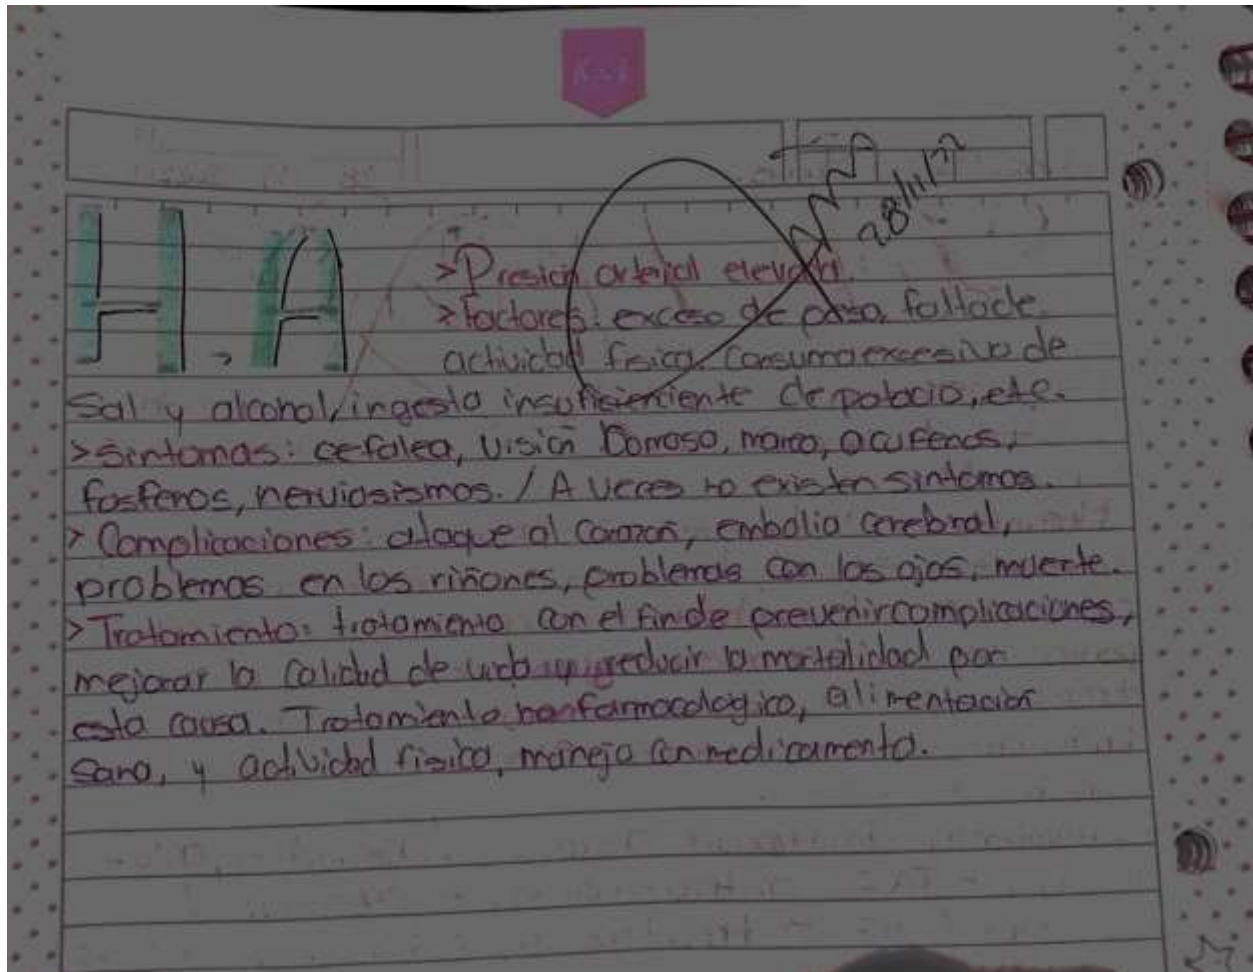 H.A
28/11/22
>Presion arterial elevada.
>Factores: exceso de peso, falta de
actividad fisica. Consumo excesivo de
Sal y alcohol, ingesta de potacio, etc.
>Sintomas: cefalea, visión borrosa, mareo, acufenos,
fosfenos, nerviosismos. / A veces no existen sintomas.
> Complicaciones: ataque al corazón, embolia cerebral,
problemas en los riñones, problemas con los ojos, muerte.
>Tratamiento: tratamiento con el fin de prevenir complicaciones,
mejorar la calidad de vida y reducir la mortalidad por
esta causa. Tratamiento farmacologico, alimentación
sana, y actividad fisica, manejo con medicamento.